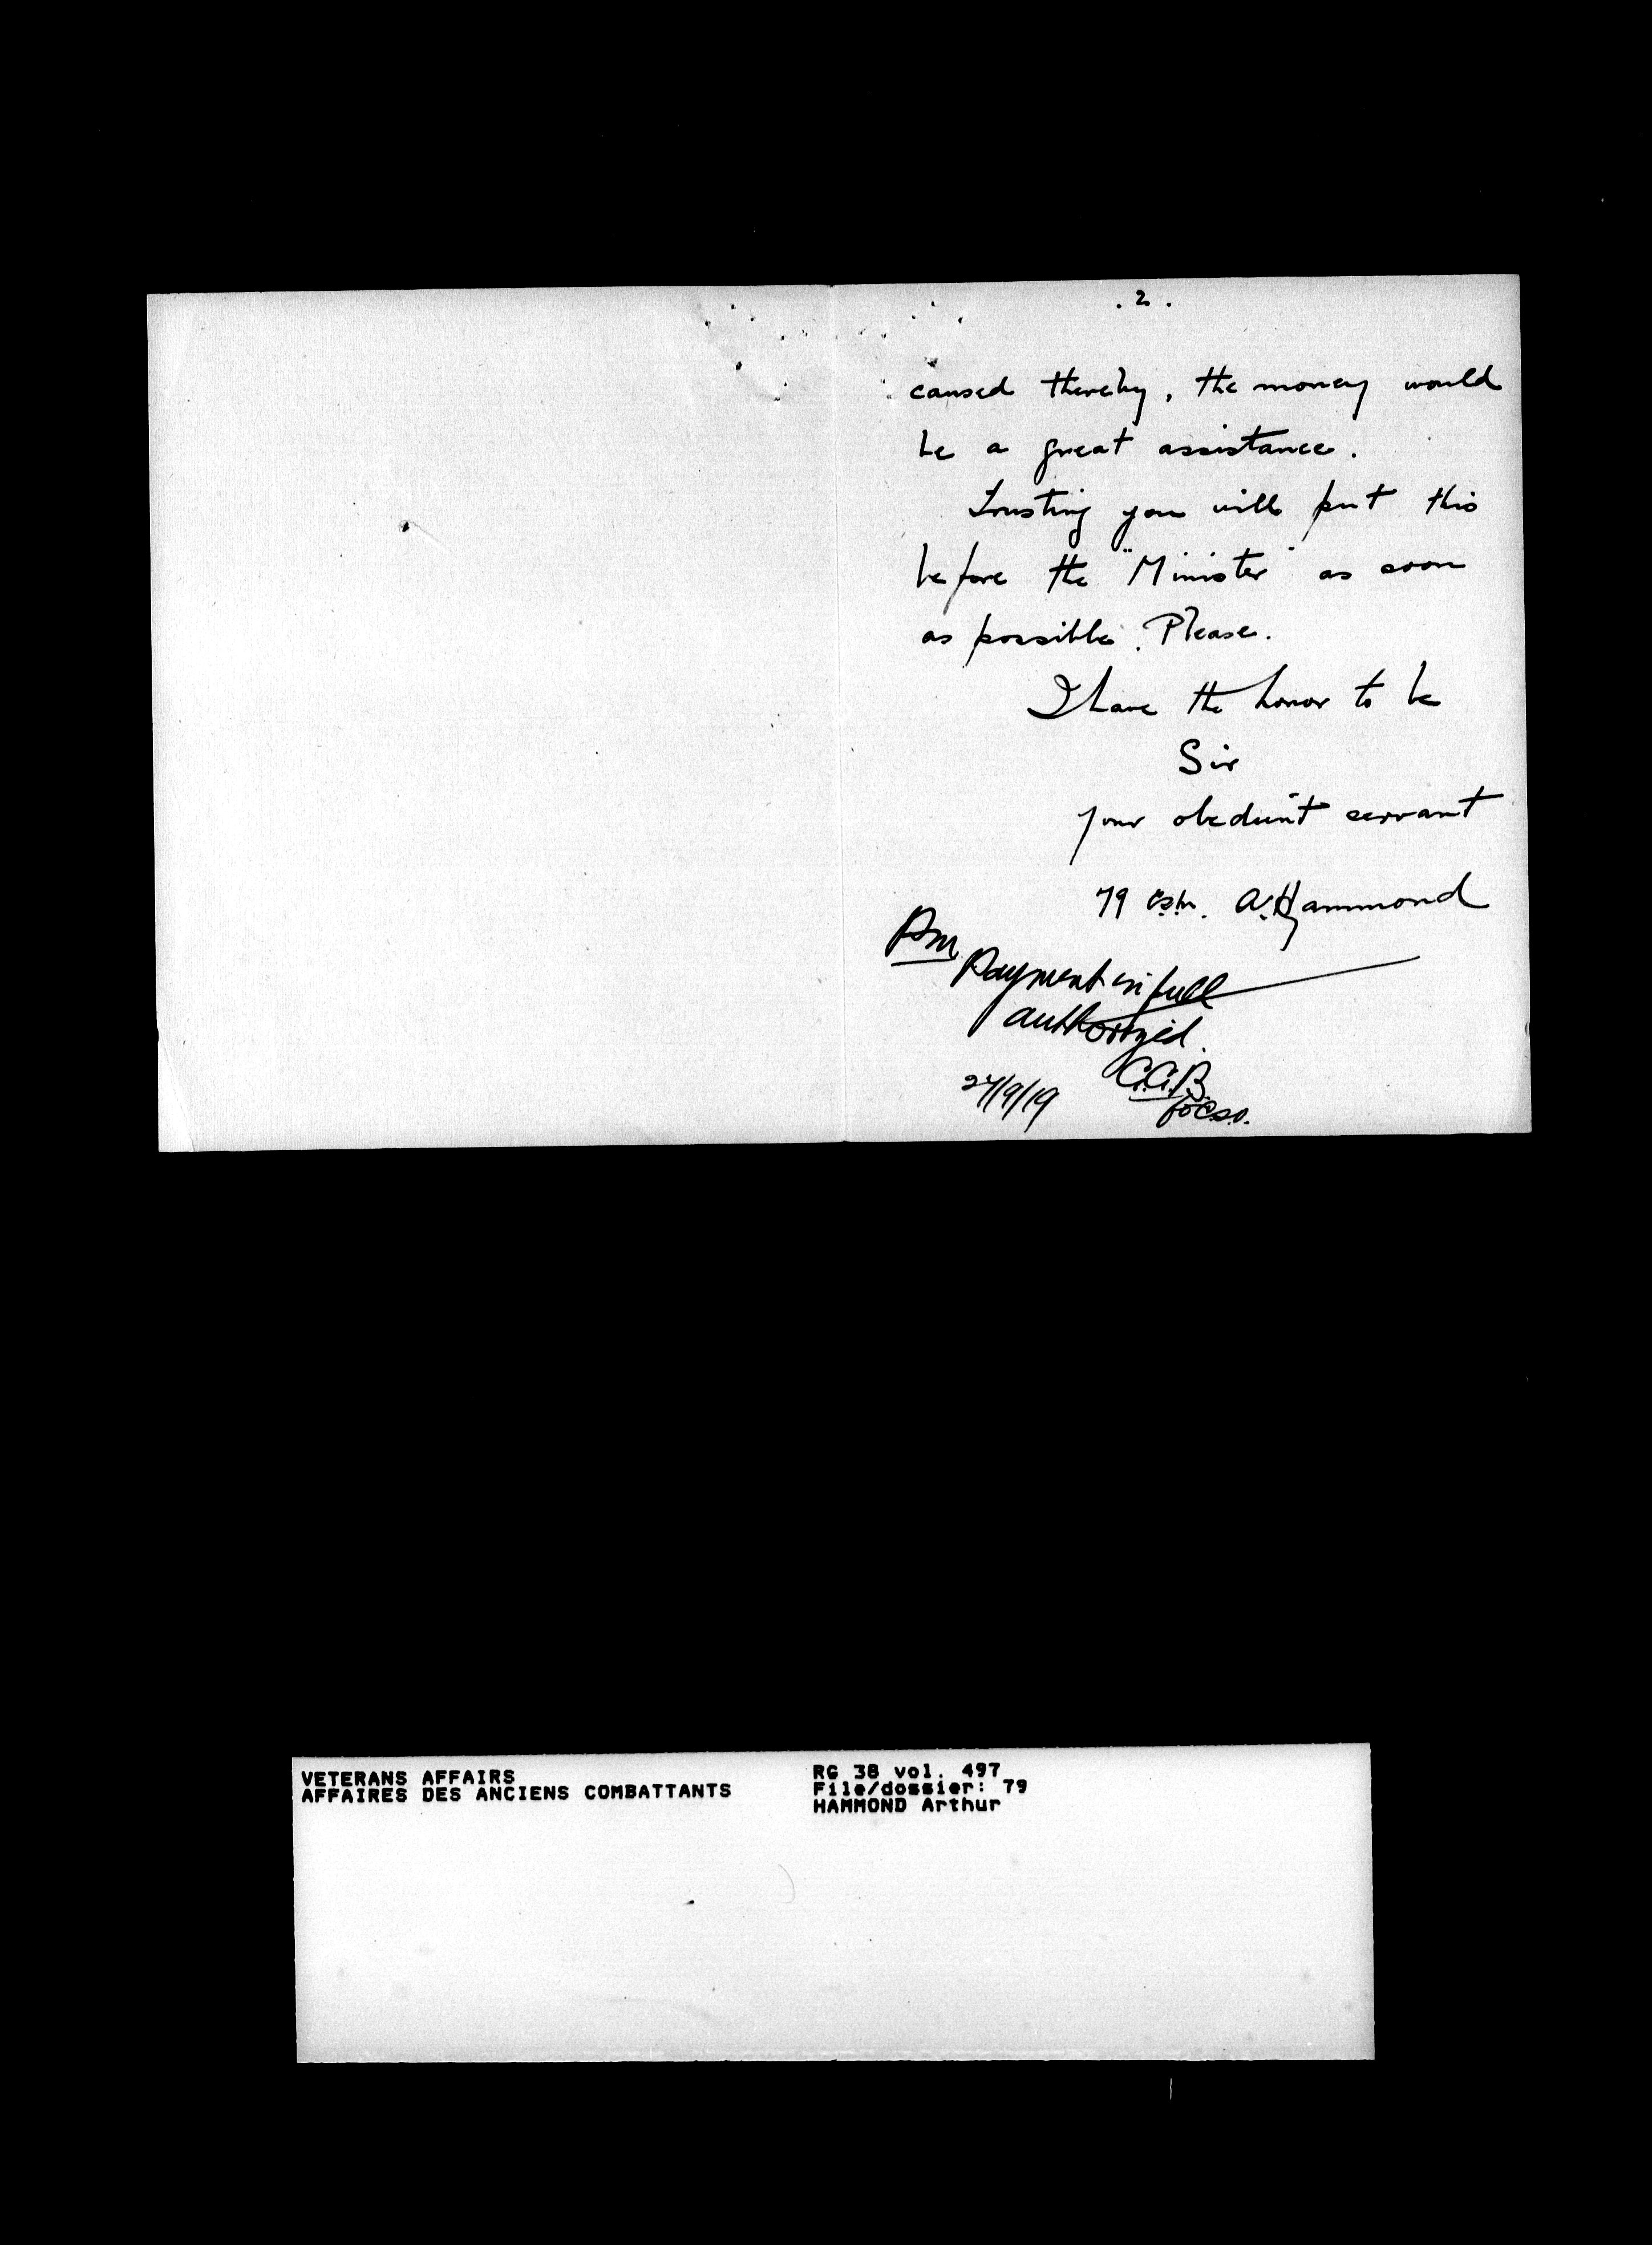 . 2 .
caused thereby, the money would
be a great assistance.
Trusting you will put this
before the "Minister" as soon
as possible. Please.
I have the honor to be
Sir
your obedient servant
79 A. Hammond
Pm
Payment in full
authorized.
27/9/19
VETERANS AFFAIRS
AFFAIRES DES ANCIENS COMBATTANTS
RG 38 vol. 497
File/dossier: 79
HAMMOND Arthur